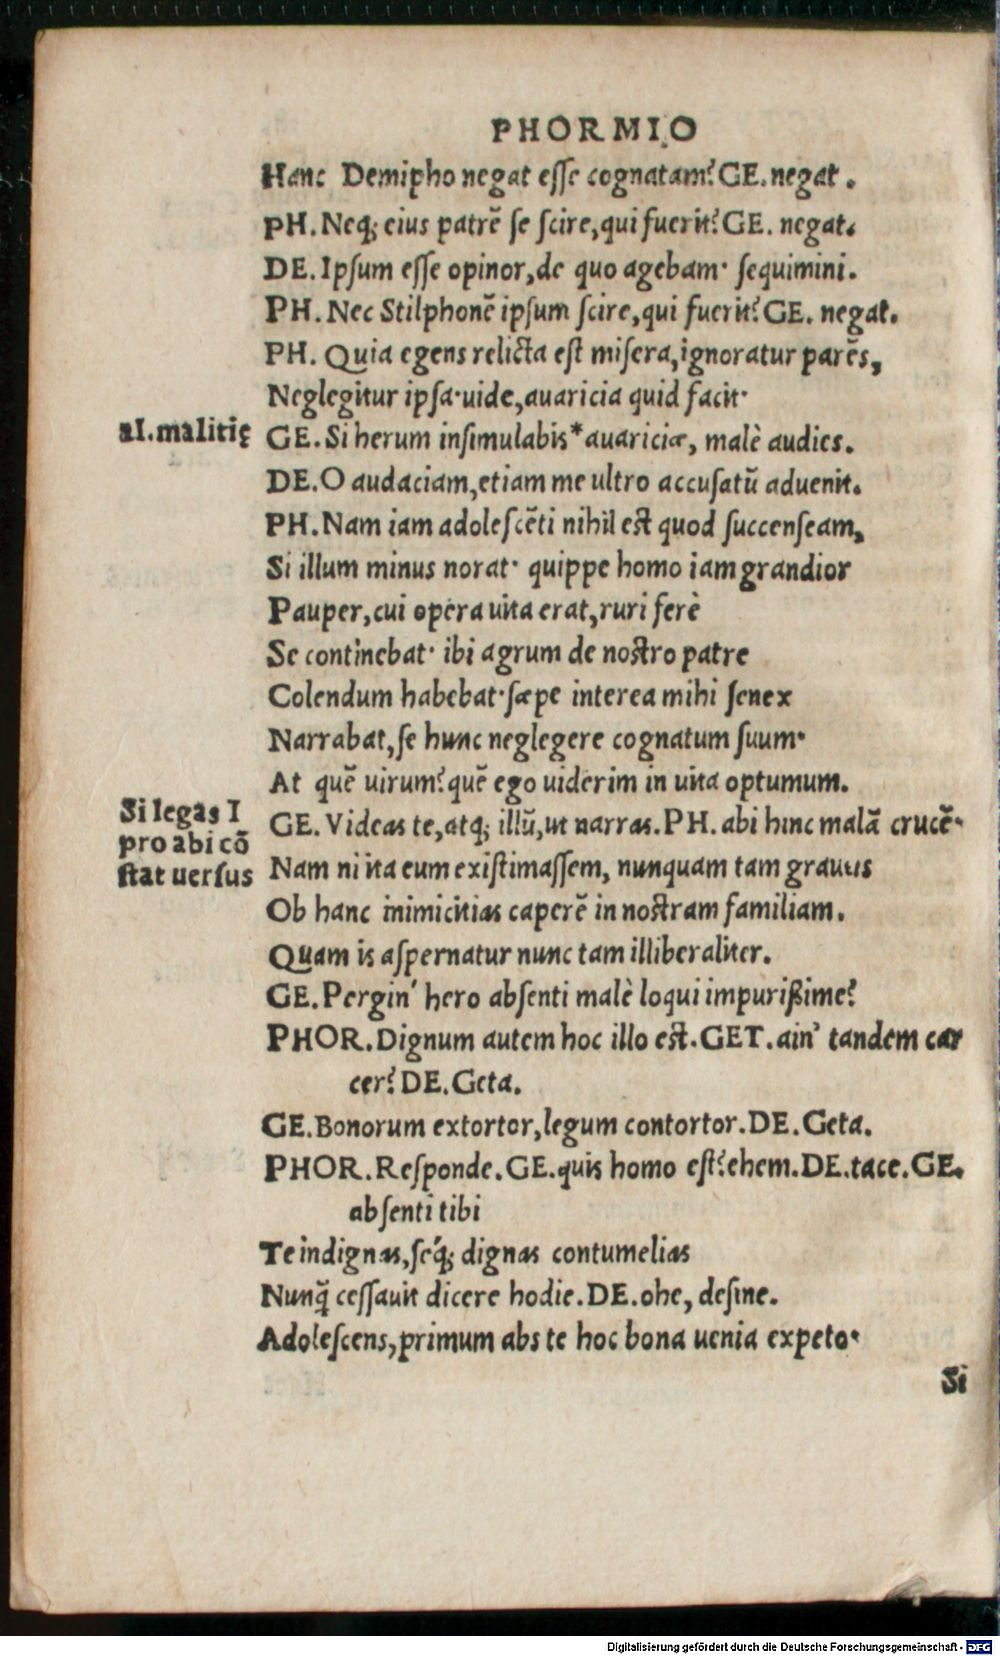 PHORMIO
Hanc Demipho negat esse cognatam? GE. negat.
PH. Neq; eius patrẽ se scire, qui fuerit? GE. negat.
DE. Ipsum esse opinor, de quo agebam· sequimini.
PH. Nec Stilphonẽ ipsum scire, qui fuerit? GE. negat.
PH. Quia egens relicta est misera, ignoratur parẽs,
Neglegitur ipsa· uide, auaricia quid facit·
al. malitię
GE. Si herum insimulabis* auariciæ, malè audies.
DE. O audaciam, etiam me ultro accusatũ aduenit.
PH. Nam iam adolescẽti nihil est quod succenseam,
Si illum minus norat· quippe homo iam grandior
Pauper, cui opera uita erat, ruri ferè
Se continebat· ibi agrum de nostro patre
Colendum habebat· sæpe interea mihi senex
Narrabat, se hunc neglegere cognatum suum·
At quẽ uirum? quẽ ego uiderim in uita optumum.
Si legas I
pro abi cõ
stat uersus
GE. Videas te, atq; illũ, ut narras. PH. abi hinc malã crucẽ·
Nam ni ita eum existimassem, nunquam tam grauis
Ob hanc inimicitias caperẽ in nostram familiam.
Quam is aspernatur nunc tam illiberaliter.
GE. Pergin' hero absenti malè loqui impurißime?
PHOR. Dignum autem hoc illo est. GET. ain' tandem car
cer? DE. Geta.
GE. Bonorum extortor, legum contortor. DE. Geta.
PHOR. Responde. GE. quis homo est? ehem. DE. tace. GE.
absenti tibi
Te indignas, seq́; dignas contumelias
Nunq̃ cessauit dicere hodie. DE. ohe, desine.
Adolescens, primum abs te hoc bona uenia expeto·
Si
Digitalisierung gefördert durch die Deutsche Forschungsgemeinschaft - DFG